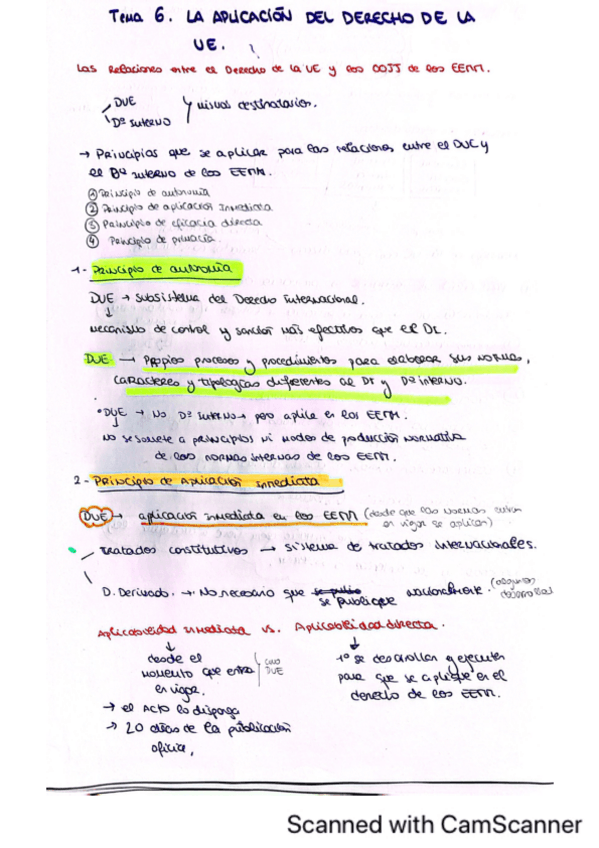 Tema 6. LA APLICACIÓN DEL DERECHO DE LA
UE.
Las Relaciones entre el Derecho de la UE y los OOJJ de los EEMM.
DUE
Dº Interno
mismos destinatarios.
→ Principios que se aplican para las relaciones entre el DUE y
el Dº interno de los EEMM.
① Principio de autonomía
② Principio de aplicación inmediata
③ Principio de eficacia directa
④ Principio de primacía.
1- Principio de autonomía
DUE → Subsistema del Derecho Internacional.
↓
mecanismo de control y sanción más efectivos que el DI.
DUE → Propios procesos y procedimientos para elaborar sus normas,
caracteres y tipologías diferentes al DI y Dº interno.
• DUE → No Dº interno → pero aplica en los EEMM.
↓
no se somete a principios ni modos de producción normativa
de las normas internas de los EEMM.
2- Principio de Aplicación Inmediata
DUE → aplicación inmediata en los EEMM (desde que las normas entran
en vigor se aplican)
Tratados constitutivos → sistema de tratados internacionales.
D. Derivado. → No necesario que se publique nacionalmente.
Aplicabilidad inmediata vs. Aplicabilidad directa.
↓ ↓
desde el
momento que entra
en vigor.
DUE
→ el Acto lo disponga
→ 20 días de la publicación
oficial,
1º se desarrollan y ejecuten
para que se aplique en el
derecho de los EEMM.
Scanned with CamScanner